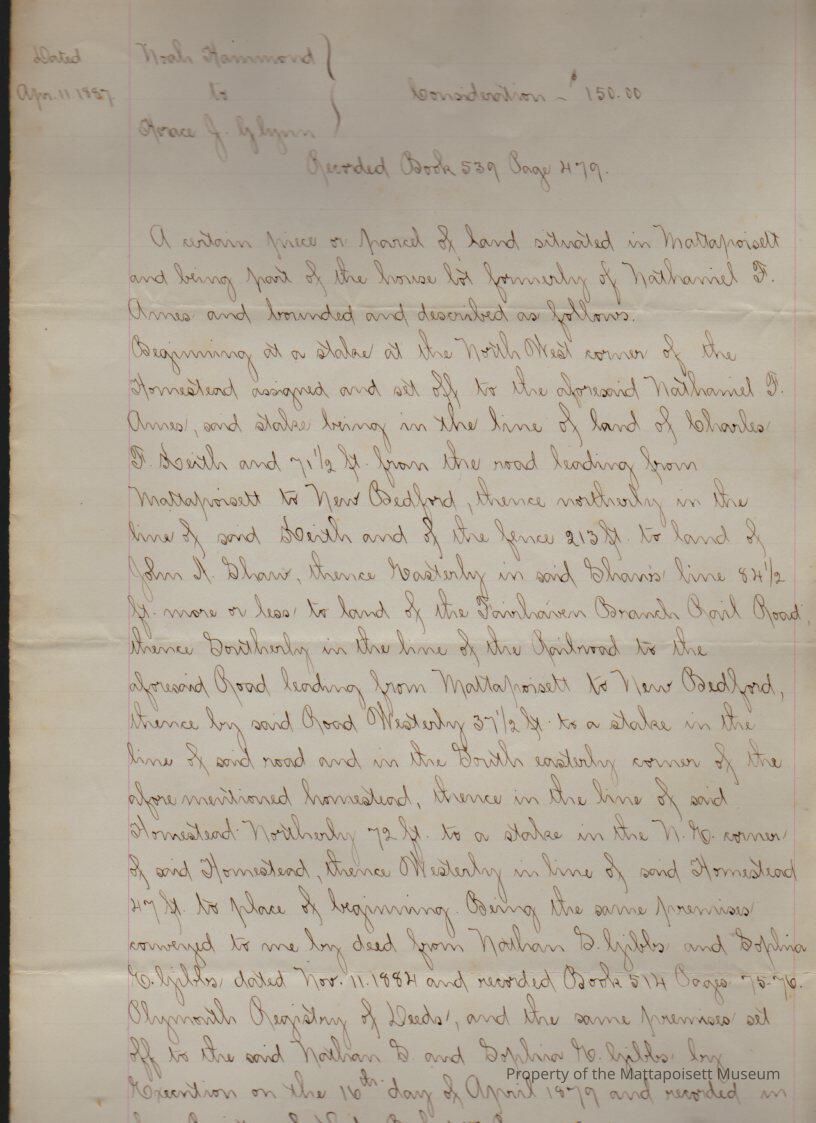 Dated Noah Hammond
Apr. 11 1887. to Consideration - $150.00
Horace J. Glynn
Recorded Book 539 Page 479.
A certain piece or parcel of land situated in Mattapoisett
and being part of the house lot formerly of Nathaniel F.
Ames and bounded and described as follows.
Beginning at a stake at the North West corner of the
Homestead assigned and set off to the aforesaid Nathaniel F.
Ames, said stake being in the line of land of Charles
F. Keith and 71 1/2 ft. from the road leading from
Mattapoisett to New Bedford, thence northerly in the
line of said Keith and of the fence 213 ft. to land of
John N. Shaw, thence Easterly in said Shaw's line 84 1/2
ft. more or less to land of the Fairhaven Branch Rail Road,
thence Southerly in the line of the Railroad to the
aforesaid Road leading from Mattapoisett to New Bedford,
thence by said Road Westerly 37 1/2 ft. to a stake in the
line of said road and in the South easterly corner of the
afore mentioned homestead, thence in the line of said
Homestead Northerly 72 ft. to a stake in the N. E. corner
of said Homestead, thence Westerly in line of said Homestead
47 ft. to place of beginning. Being the same premises
conveyed to me by deed from Nathan S. Gibbs and Sophia
E. Gibbs dated Nov. 11. 1884 and recorded Book 514 Pages 75-76.
Plymouth Registry of Deeds, and the same premises set
off to the said Nathan S. and Sophia E. Gibbs by
Execution on the 16th day of April 1879 and recorded in
Property of the Mattapoisett Museum